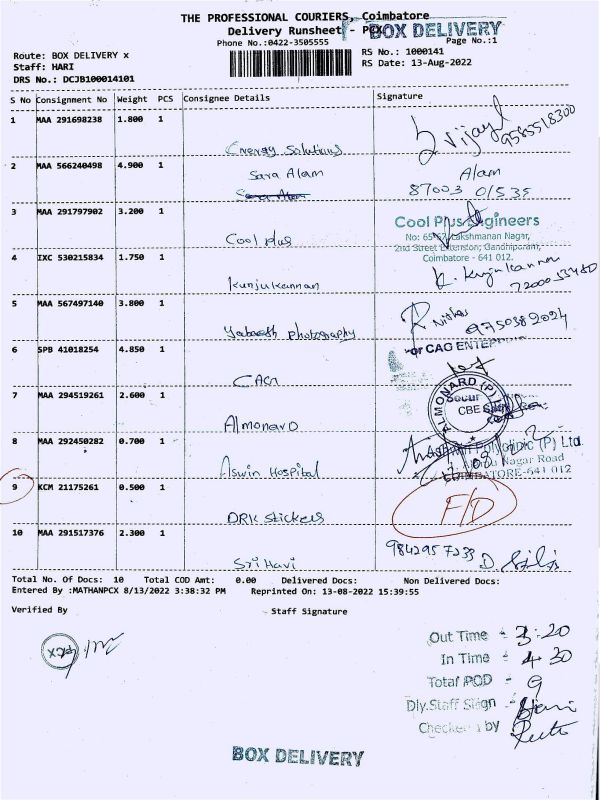 THE PROFESSIONAL COURIERS, Coimbatore
Delivery Runsheet - PCX
BOX DELIVERY
Phone No.:0422-3505555
Page No.:1
Route: BOX DELIVERY x
RS No.: 1000141
Staff: HARI
RS Date: 13-Aug-2022
DRS No.: DCJB100014101
S No Consignment No Weight PCS Consignee Details Signature
1 MAA 291698238 1.800 1
Energy Solutions
Vijay
9585518300
2 MAA 566240498 4.900 1
Sara Alam
Alam
87003 01535
3 MAA 291797902 3.200 1
Cool plus
Cool Plus Engineers
Lakshmanan Nagar,
2nd Street Extension, Gandhipuram,
Coimbatore - 641 012.
4 IXC 530215834 1.750 1
Kunjukannan
K. Kunjukannan
5 MAA 567497140 3.800 1
photography
9750382024
6 SPB 41018254 4.850 1
For CAG
7 MAA 294519261 2.600 1
Almonard
ALMONARD (P)
CBE
8 MAA 292450282 0.700 1
Aswin Hospital
Polyclinic (P) Ltd.
Nagar Road
COIMBATORE-641 012
9 KCM 21175261 0.500 1
DRK Stickers
F/D
10 MAA 291517376 2.300 1
Sri Hari
9842957233
Total No. Of Docs: 10 Total COD Amt: 0.00 Delivered Docs: Non Delivered Docs:
Entered By :MATHANPCX 8/13/2022 3:38:32 PM Reprinted On: 13-08-2022 15:39:55
Verified By Staff Signature
PCX
Out Time - 3:20
In Time - 4 30
Total POD - 9
Dly.Staff Sign - Hari
Checked by
BOX DELIVERY